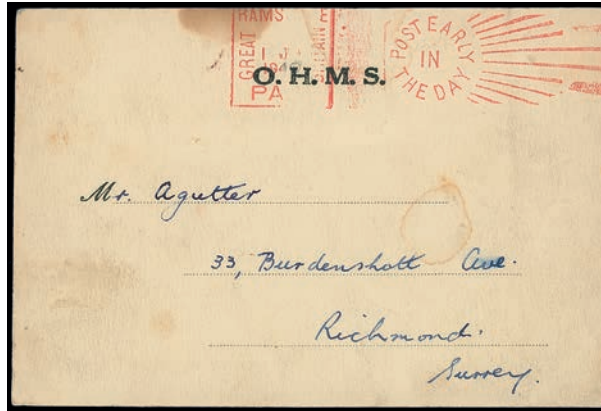 RAMS
GREAT
PA
POST EARLY
IN
THE DAY
O. H. M. S.
Mr. Agutter
33, Burdenshott Ave.
Richmond.
Surrey.